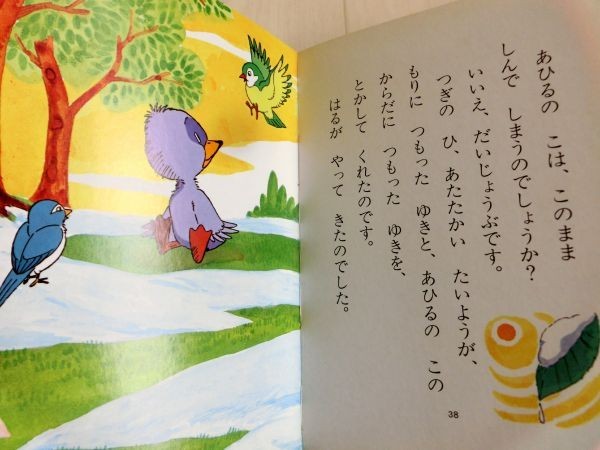 あひるの こは、このまま
しんで しまうのでしょうか?
いいえ、だいじょうぶです。
つぎの ひ、あたたかい たいようが、
もりに つもった ゆきと、あひるの この
からだに つもった ゆきを、
とかして くれたのです。
はるが やって きたのでした。
38